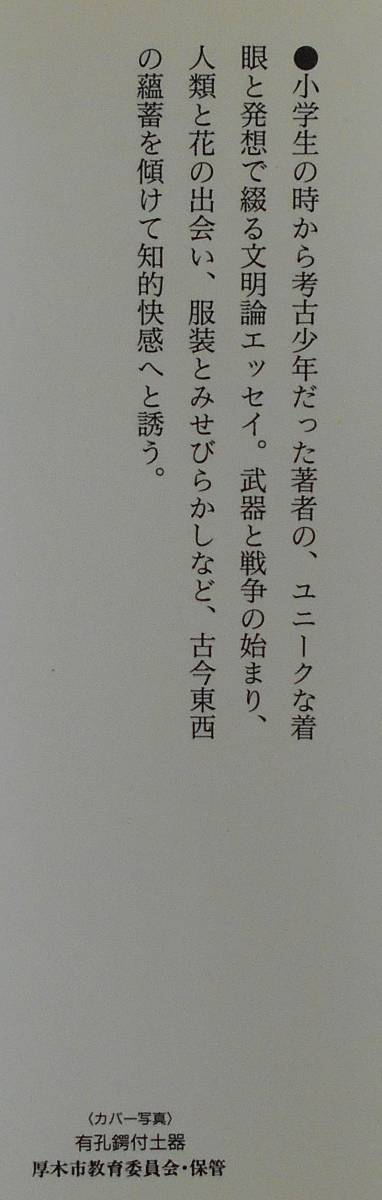 ●小学生の時から考古少年だった著者の、ユニークな着
眼と発想で綴る文明論エッセイ。武器と戦争の始まり、
人類と花の出会い、服装とみせびらかしなど、古今東西
の蘊蓄を傾けて知的快感へと誘う。
〈カバー写真〉
有孔鍔付土器
厚木市教育委員会・保管